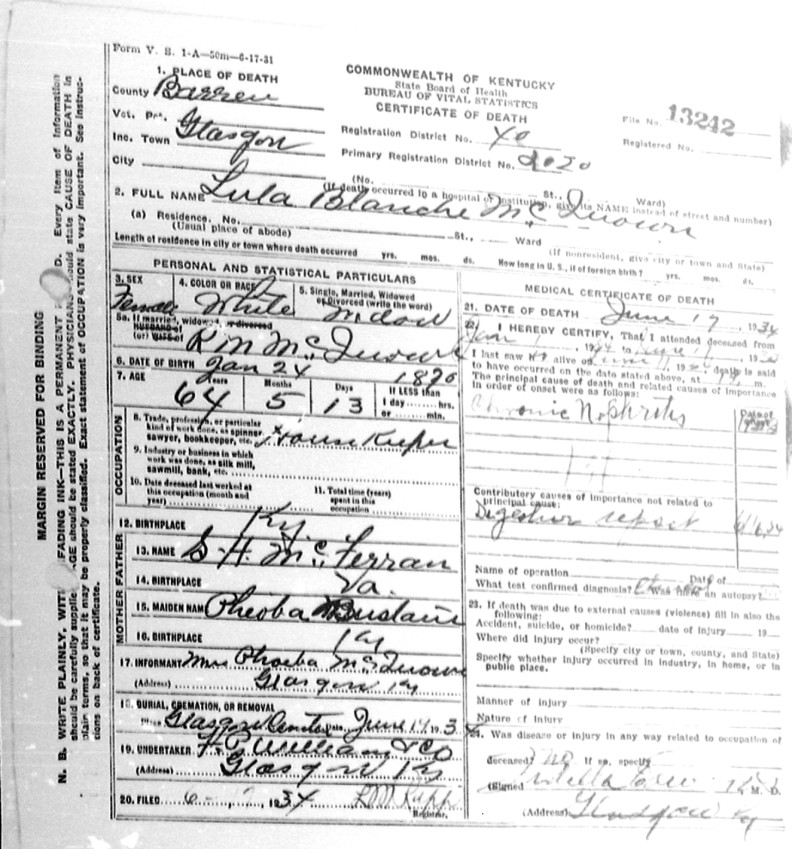 Form V. S. 1-A—50m—6-17-31
COMMONWEALTH OF KENTUCKY
State Board of Health
BUREAU OF VITAL STATISTICS
CERTIFICATE OF DEATH
File No. 13242
Registered No.
Registration District No. 40
Primary Registration District No. 2020
1. PLACE OF DEATH
County Barren
Vot. Pct.
Inc. Town Glasgow
City
(No. St., Ward)
(If death occurred in a hospital or institution, give its NAME instead of street and number)
2. FULL NAME Lula Blanche McQuown
(a) Residence. No. St., Ward
(Usual place of abode) (If nonresident, give city or town and State)
Length of residence in city or town where death occurred yrs. mos. ds. How long in U. S., if of foreign birth? yrs. mos. ds.
PERSONAL AND STATISTICAL PARTICULARS
3. SEX Female
4. COLOR OR RACE White
5. Single, Married, Widowed or Divorced (write the word) Widow
5a. If married, widowed, or divorced
HUSBAND of
(or) WIFE of McQuown
6. DATE OF BIRTH Jan 24 1870
7. AGE 64 Years 5 Months 13 Days If LESS than 1 day hrs. or min.
OCCUPATION
8. Trade, profession, or particular kind of work done, as spinner, sawyer, bookkeeper, etc. House Keeper
9. Industry or business in which work was done, as silk mill, sawmill, bank, etc.
10. Date deceased last worked at this occupation (month and year)
11. Total time (years) spent in this occupation
12. BIRTHPLACE Ky
FATHER
13. NAME McFerran
14. BIRTHPLACE Va.
MOTHER
15. MAIDEN NAME Pheoba
16. BIRTHPLACE Ky
17. INFORMANT Phoeba McQuown
(Address) Glasgow Ky
18. BURIAL, CREMATION, OR REMOVAL
Place Glasgow June 193
19. UNDERTAKER & Co
(Address) Glasgow Ky
20. FILED 6- 1934
Registrar.
MEDICAL CERTIFICATE OF DEATH
21. DATE OF DEATH June 17, 1934
22. I HEREBY CERTIFY, That I attended deceased from
I last saw alive on death is said
to have occurred on the date stated above, at m.
The principal cause of death and related causes of importance
in order of onset were as follows:
Date of
Chronic Nephritis
Contributory causes of importance not related to
principal cause:
Name of operation Date of
What test confirmed diagnosis? Was there an autopsy?
23. If death was due to external causes (violence) fill in also the
following:
Accident, suicide, or homicide? date of injury 19
Where did injury occur?
(Specify city or town, county, and State)
Specify whether injury occurred in industry, in home, or in
public place.
Manner of injury
Nature of injury
24. Was disease or injury in any way related to occupation of
deceased? No If so, specify
(Signed M. D.
(Address) Glasgow Ky
MARGIN RESERVED FOR BINDING
N. B. WRITE PLAINLY, WITH FADING INK—THIS IS A PERMANENT Every item of information
should be carefully supplied. AGE should be stated EXACTLY. PHYSICIANS should state CAUSE OF DEATH in
plain terms, so that it may be properly classified. Exact statement of OCCUPATION is very important. See instruc-
tions on back of certificate.